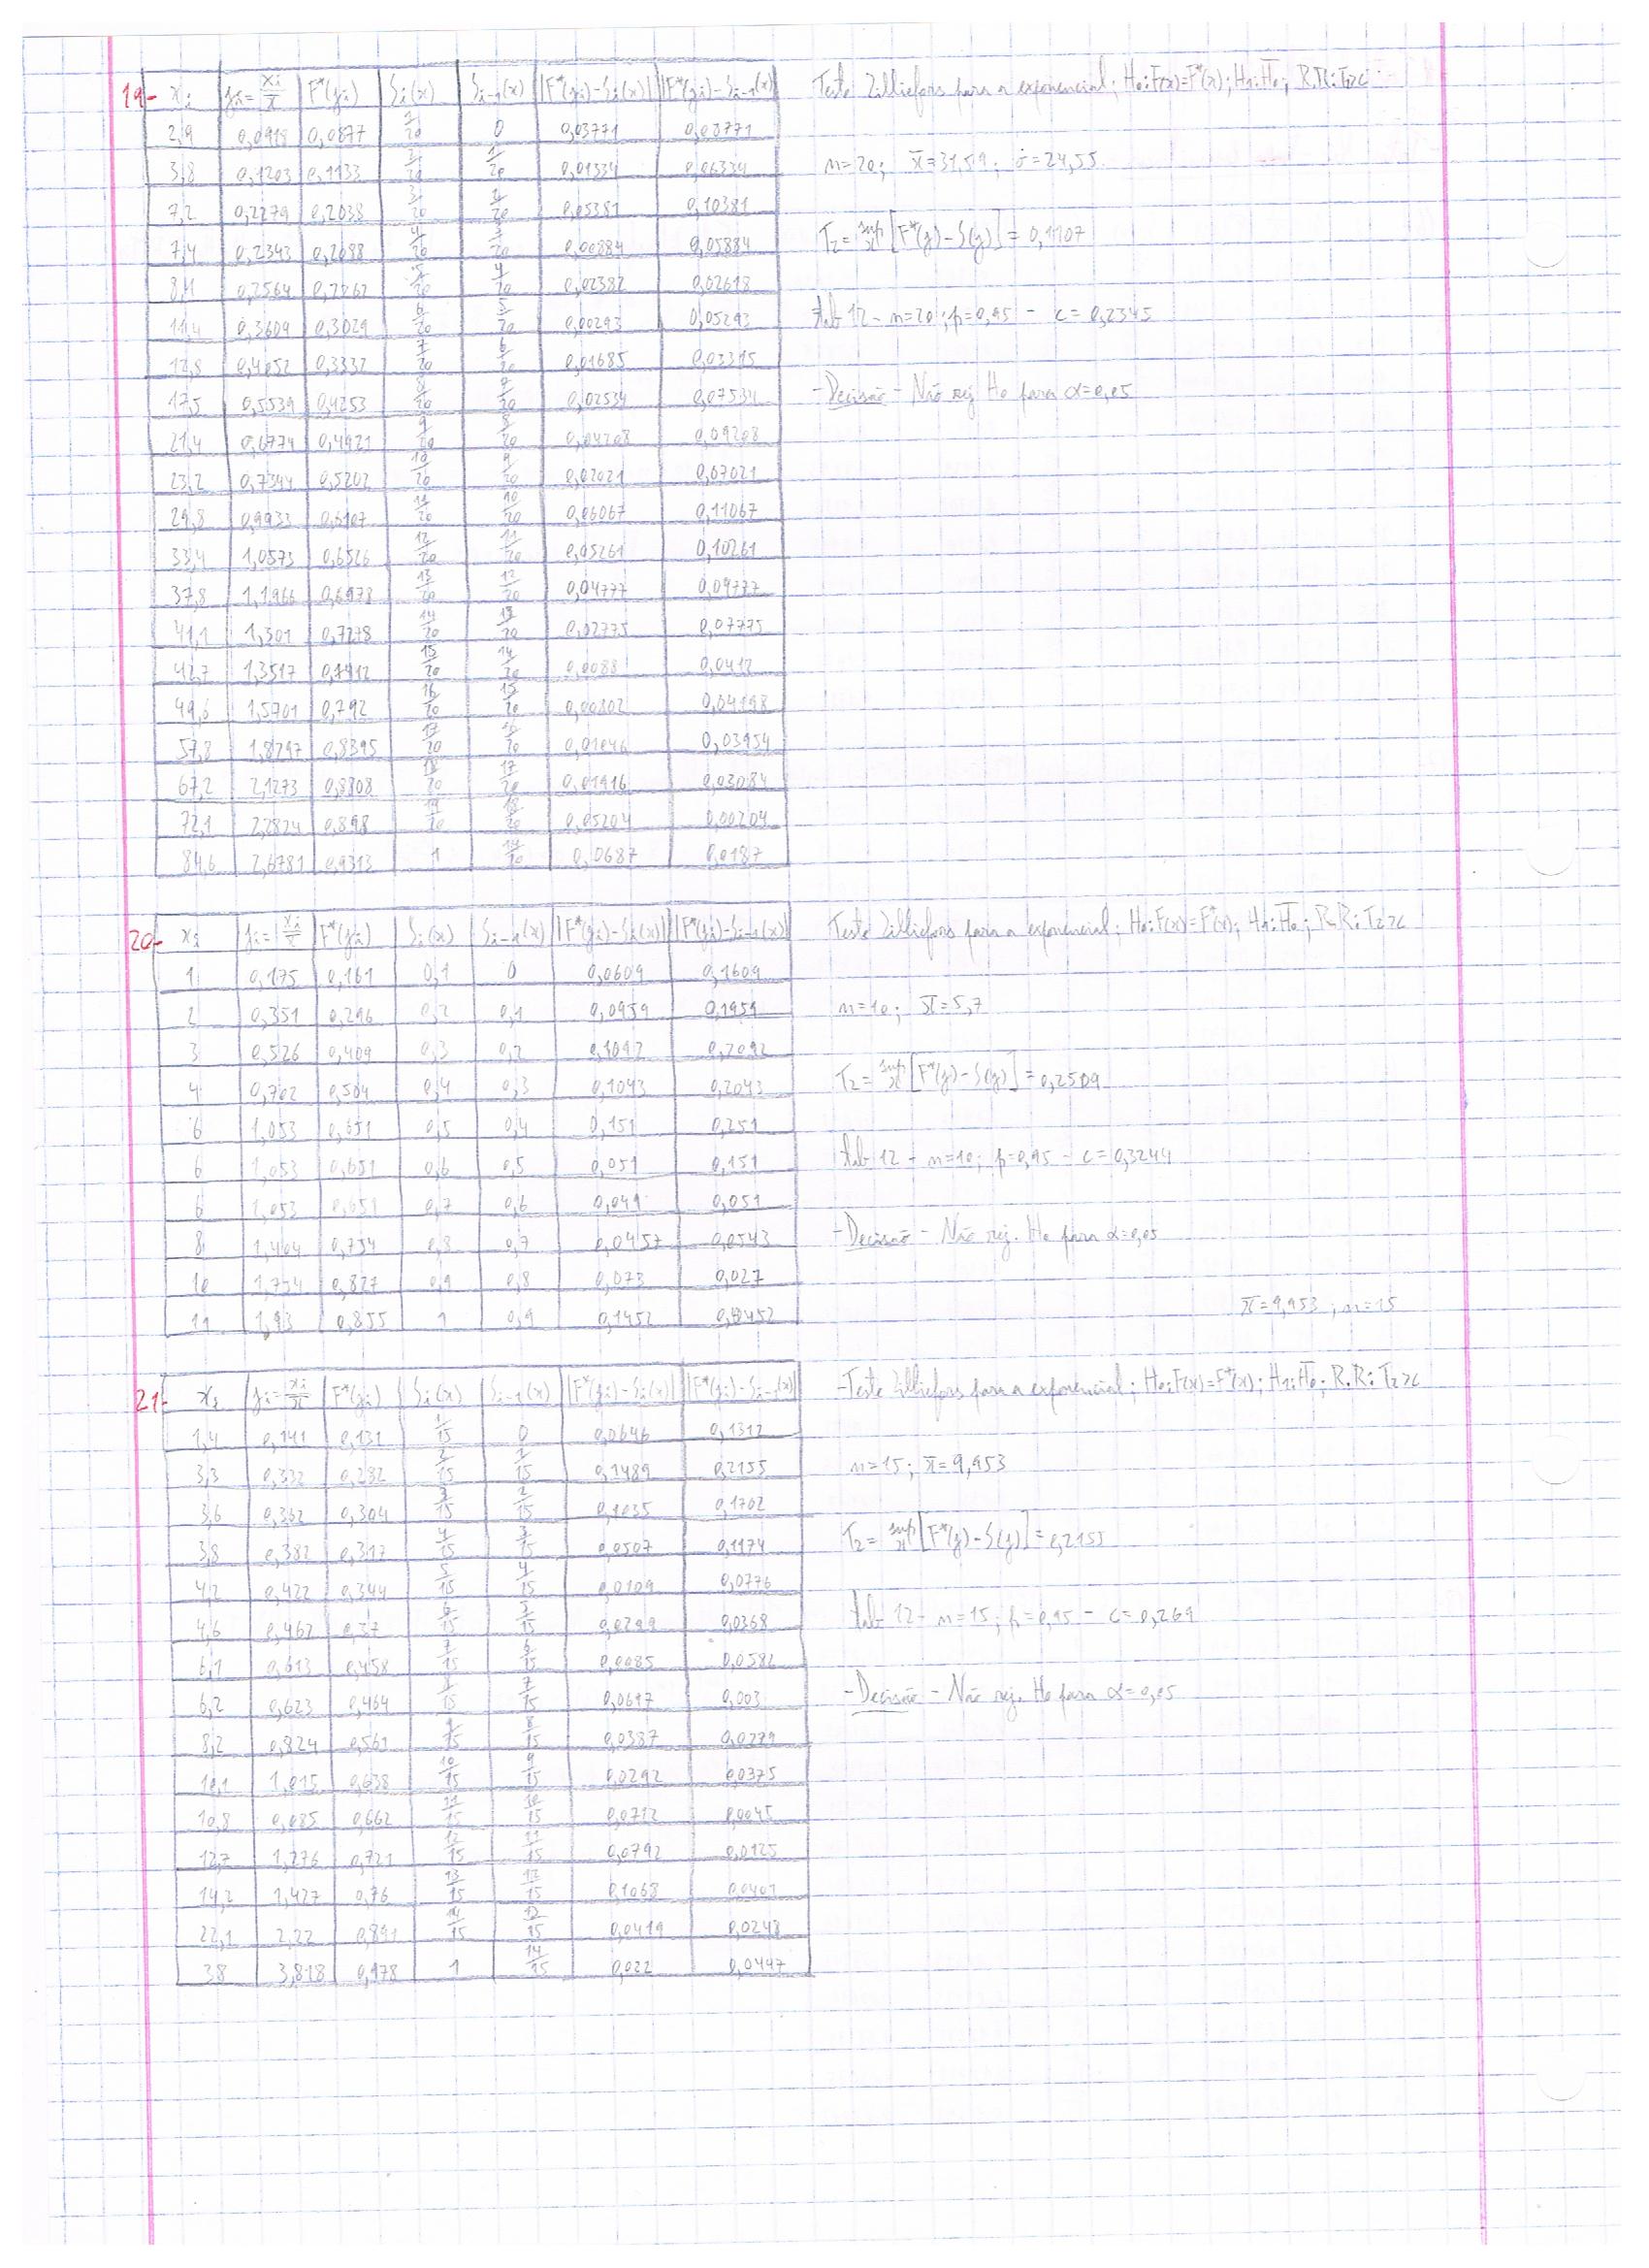 19- xi | yi = xi/x̄ | F*(yi) | Si(x) | Si-1(x) | |F*(yi)-Si(x)| | |F*(yi)-Si-1(x)|
2,9 | 0,0918 | 0,0877 | 1/20 | 0 | 0,03771 | 0,08771
3,8 | 0,1203 | 0,1133 | 2/20 | 1/20 | 0,01334 | 0,06334
7,2 | 0,2279 | 0,2038 | 3/20 | 2/20 | 0,05381 | 0,10381
7,4 | 0,2343 | 0,2088 | 4/20 | 3/20 | 0,00884 | 0,05884
8,1 | 0,2564 | 0,2262 | 5/20 | 4/20 | 0,02382 | 0,02618
11,4 | 0,3609 | 0,3029 | 6/20 | 5/20 | 0,00293 | 0,05293
12,8 | 0,4052 | 0,3332 | 7/20 | 6/20 | 0,01685 | 0,03315
17,5 | 0,5539 | 0,4253 | 8/20 | 7/20 | 0,02534 | 0,07534
21,4 | 0,6774 | 0,4921 | 9/20 | 8/20 | 0,04208 | 0,09208
23,2 | 0,7344 | 0,5202 | 10/20 | 9/20 | 0,02021 | 0,07021
29,8 | 0,9933 | 0,6107 | 11/20 | 10/20 | 0,06067 | 0,11067
33,4 | 1,0573 | 0,6526 | 12/20 | 11/20 | 0,05261 | 0,10261
37,8 | 1,1966 | 0,6978 | 13/20 | 12/20 | 0,04777 | 0,09777
41,1 | 1,301 | 0,7278 | 14/20 | 13/20 | 0,02775 | 0,07775
42,7 | 1,3517 | 0,7412 | 15/20 | 14/20 | 0,0088 | 0,0412
49,6 | 1,5701 | 0,792 | 16/20 | 15/20 | 0,00802 | 0,04198
57,8 | 1,8297 | 0,8395 | 17/20 | 16/20 | 0,01046 | 0,03954
67,2 | 2,1273 | 0,8808 | 18/20 | 17/20 | 0,01916 | 0,03084
72,1 | 2,2824 | 0,898 | 19/20 | 18/20 | 0,05204 | 0,00204
84,6 | 2,6781 | 0,9313 | 1 | 19/20 | 0,0687 | 0,0187
Teste Lilliefors para a exponencial; H0:F(x)=F*(x); H1:H̄0; R.R: T2>c
n=20; x̄=31,59; σ=24,55
T2 = sup x [F*(y)-S(y)] = 0,1107
tab 12 - n=20; p=0,95 - c=0,2345
-Decisão - Não rej H0 para α=0,05
20- xi | yi = xi/x̄ | F*(yi) | Si(x) | Si-1(x) | |F*(yi)-Si(x)| | |F*(yi)-Si-1(x)|
1 | 0,175 | 0,161 | 0,1 | 0 | 0,0609 | 0,1609
2 | 0,351 | 0,296 | 0,2 | 0,1 | 0,0959 | 0,1959
3 | 0,526 | 0,409 | 0,3 | 0,2 | 0,1092 | 0,2092
4 | 0,702 | 0,504 | 0,4 | 0,3 | 0,1043 | 0,2043
6 | 1,053 | 0,651 | 0,5 | 0,4 | 0,151 | 0,251
6 | 1,053 | 0,651 | 0,6 | 0,5 | 0,051 | 0,151
6 | 1,053 | 0,651 | 0,7 | 0,6 | 0,049 | 0,051
8 | 1,404 | 0,754 | 0,8 | 0,7 | 0,0457 | 0,0543
10 | 1,754 | 0,827 | 0,9 | 0,8 | 0,073 | 0,027
11 | 1,93 | 0,855 | 1 | 0,9 | 0,1452 | 0,0452
Teste Lilliefors para a exponencial; H0:F(x)=F*(x); H1:H̄0; R.R: T2>c
n=10; x̄=5,7
T2 = sup x [F*(y)-S(y)] = 0,2509
tab 12 - n=10; p=0,95 - c=0,3244
-Decisão - Não rej. H0 para α=0,05
x̄=9,953; n=15
21- xi | yi = xi/x̄ | F*(yi) | Si(x) | Si-1(x) | |F*(yi)-Si(x)| | |F*(yi)-Si-1(x)|
1,4 | 0,141 | 0,131 | 1/15 | 0 | 0,0646 | 0,1312
3,3 | 0,332 | 0,282 | 2/15 | 1/15 | 0,1489 | 0,2155
3,6 | 0,362 | 0,304 | 3/15 | 2/15 | 0,1035 | 0,1702
3,8 | 0,382 | 0,317 | 4/15 | 3/15 | 0,0507 | 0,1174
4,2 | 0,422 | 0,344 | 5/15 | 4/15 | 0,0109 | 0,0776
4,6 | 0,462 | 0,37 | 6/15 | 5/15 | 0,0299 | 0,0368
6,1 | 0,613 | 0,458 | 7/15 | 6/15 | 0,0085 | 0,0582
6,2 | 0,623 | 0,464 | 8/15 | 7/15 | 0,0697 | 0,003
8,2 | 0,824 | 0,561 | 9/15 | 8/15 | 0,0387 | 0,0279
10,1 | 1,015 | 0,638 | 10/15 | 9/15 | 0,0292 | 0,0375
10,8 | 0,085 | 0,662 | 11/15 | 10/15 | 0,0712 | 0,0045
12,7 | 1,276 | 0,721 | 12/15 | 11/15 | 0,0792 | 0,0125
14,2 | 1,427 | 0,76 | 13/15 | 12/15 | 0,1068 | 0,0401
22,1 | 2,22 | 0,891 | 14/15 | 13/15 | 0,0419 | 0,0248
38 | 3,818 | 0,978 | 1 | 14/15 | 0,022 | 0,0447
-Teste Lilliefors para a exponencial; H0:F(x)=F*(x); H1:H̄0; R.R: T2>c
n=15; x̄=9,953
T2 = sup x [F*(y)-S(y)] = 0,2155
tab 12 - n=15; p=0,95 - c=0,269
-Decisão - Não rej. H0 para α=0,05